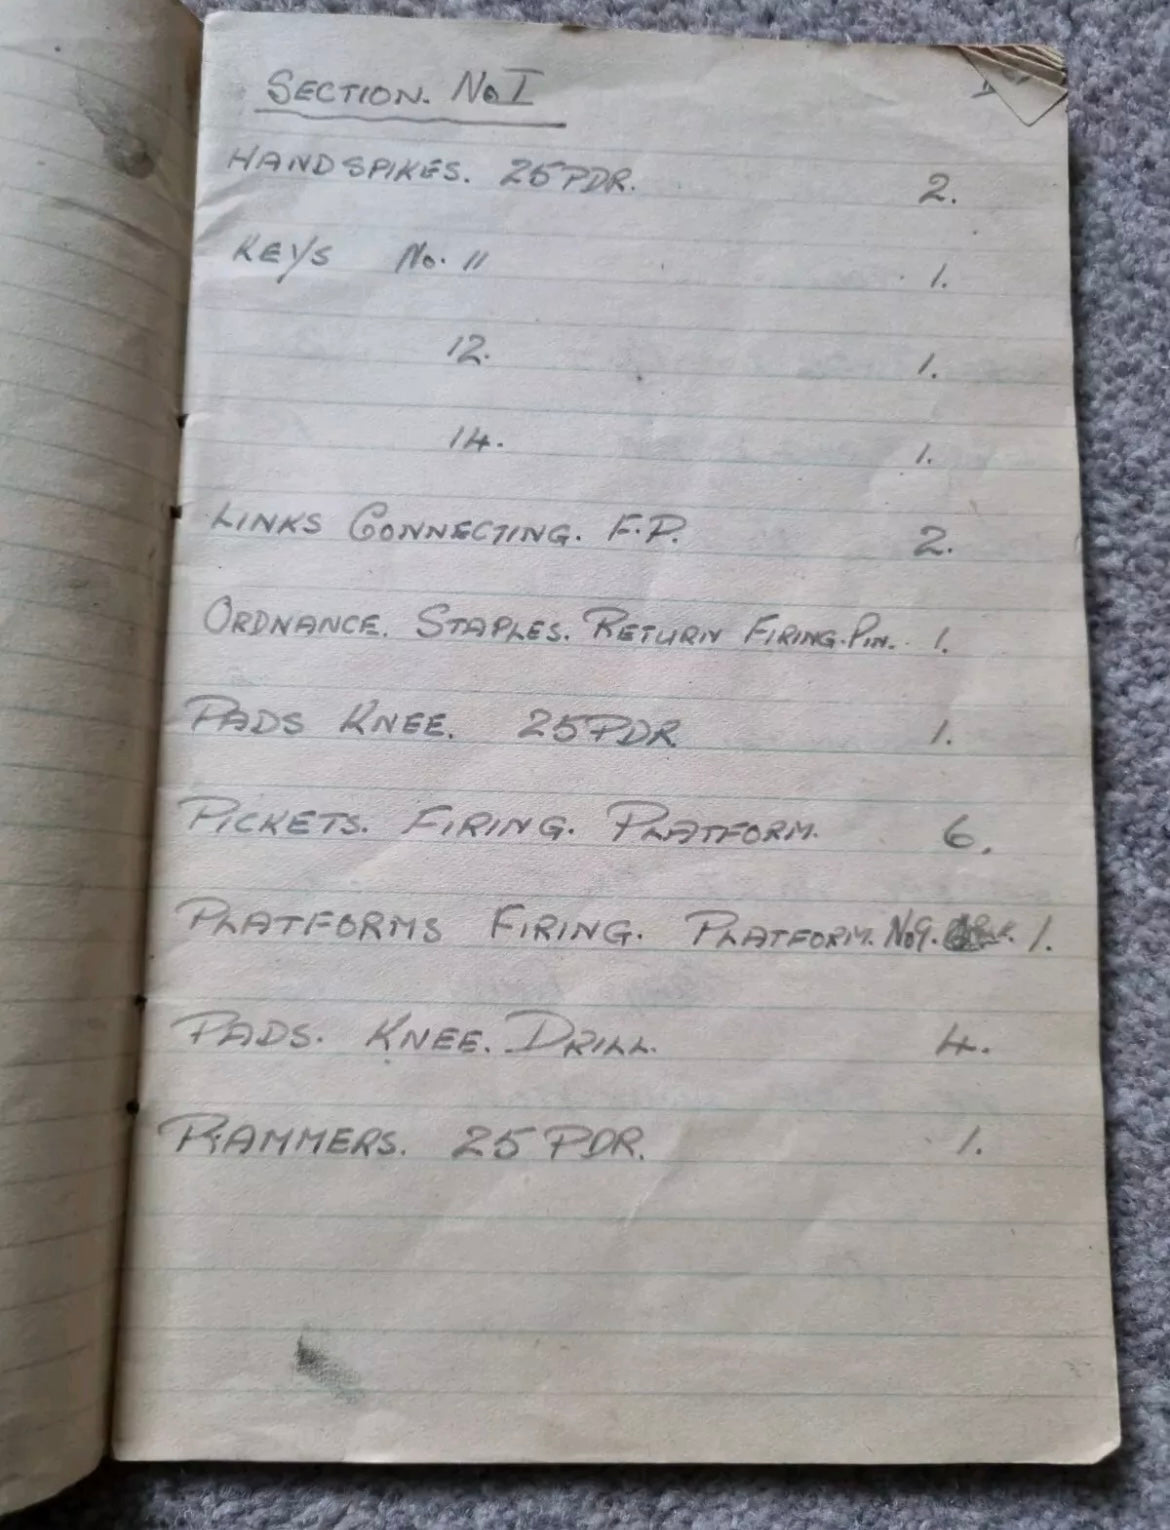 SECTION. No I
HANDSPIKES. 25 PDR. 2.
KEYS No. 11 1.
12. 1.
14. 1.
LINKS CONNECTING. F.P. 2.
ORDNANCE. STAPLES. RETURN FIRING. PIN. 1.
PADS KNEE. 25 PDR 1.
PICKETS. FIRING. PLATFORM. 6.
PLATFORMS FIRING. PLATFORM. No 9. 1.
PADS. KNEE. DRILL. 4.
RAMMERS. 25 PDR. 1.